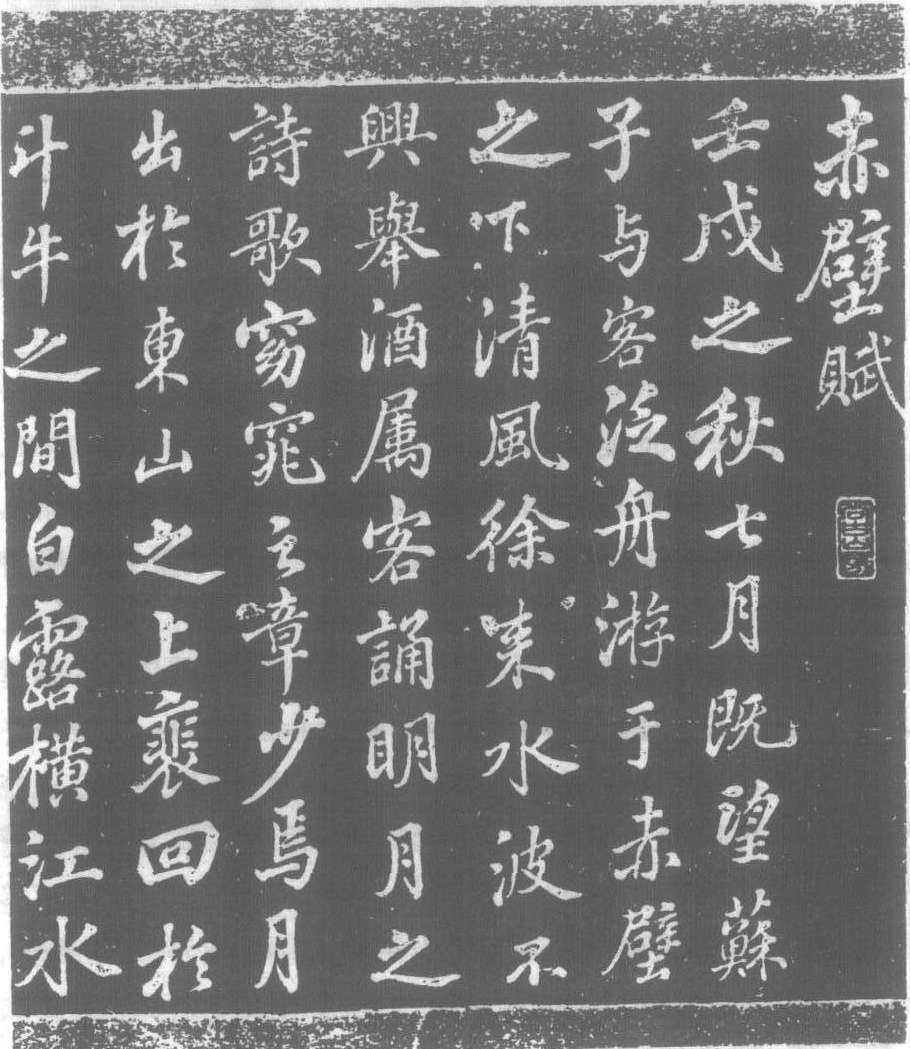 赤壁賦
壬戌之秋七月既望蘇
子与客泛舟游于赤壁
之下清風徐来水波不
興舉酒属客誦明月之
詩歌窈窕之章少焉月
出於東山之上裵回於
斗牛之間白露橫江水